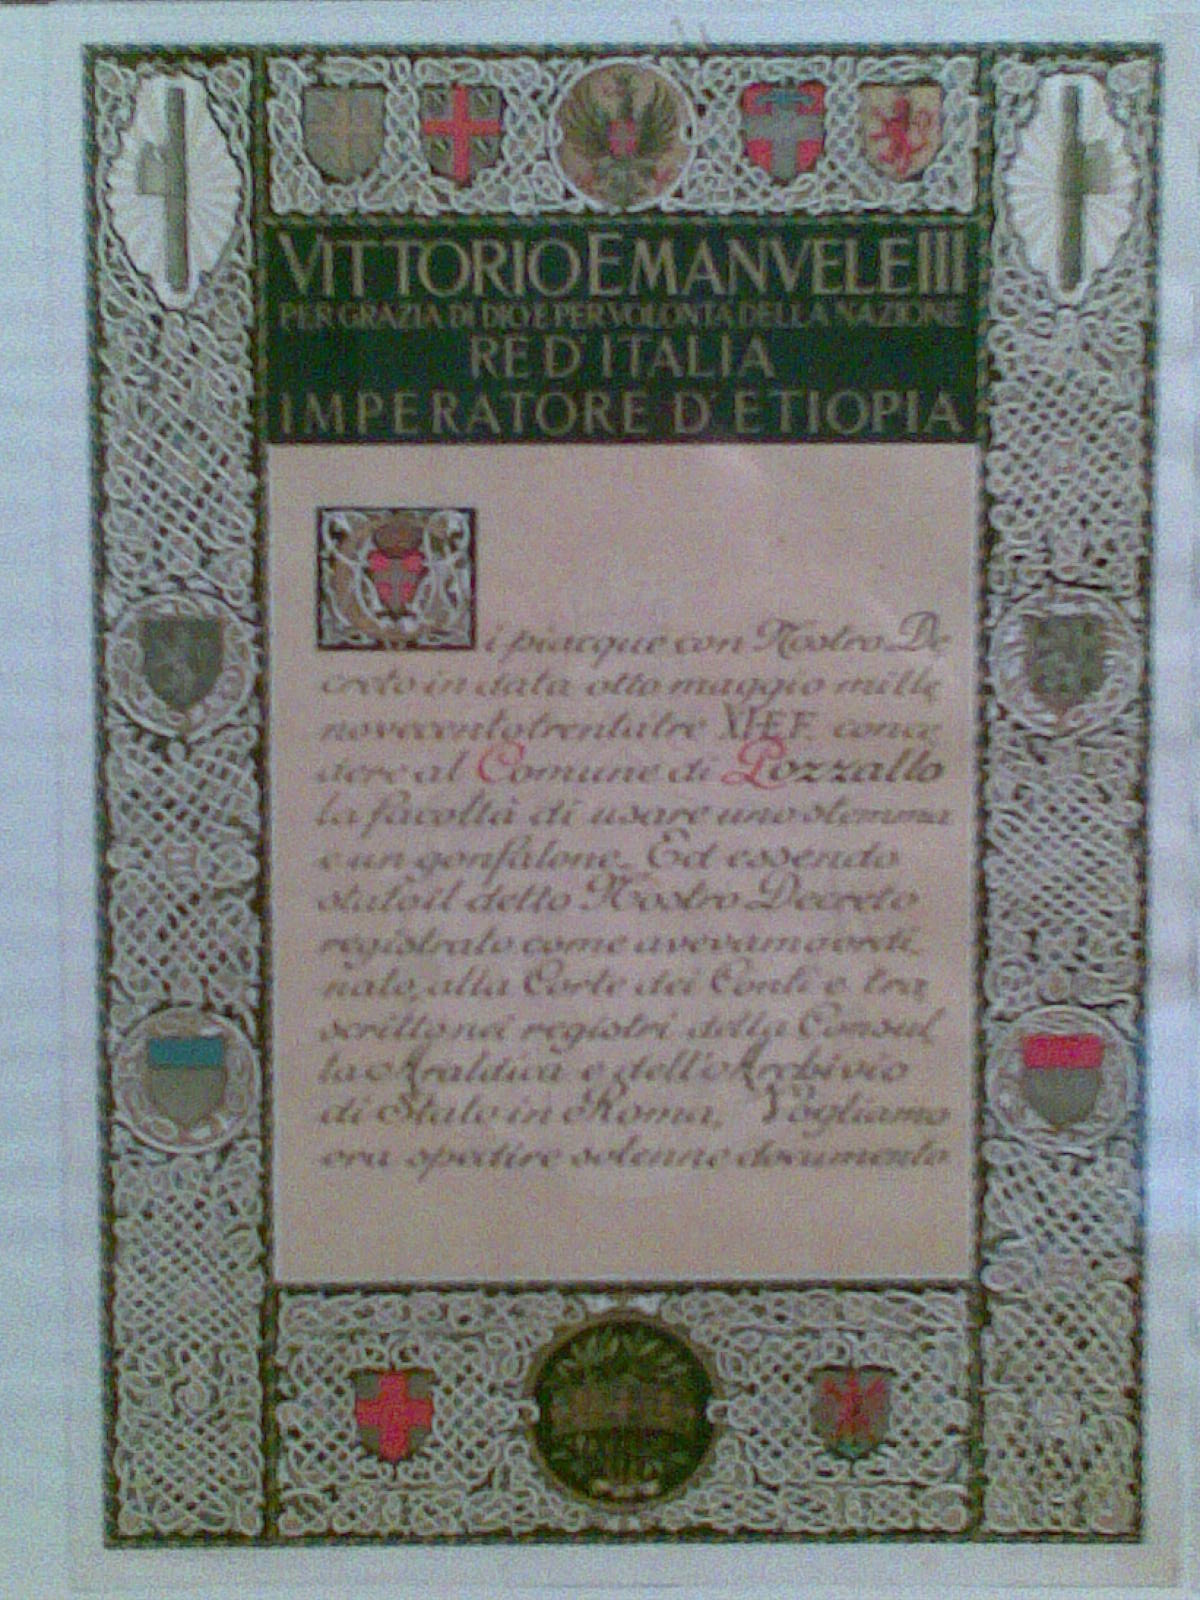 VITTORIO EMANVELE III
PER GRAZIA DI DIO E PER VOLONTA DELLA NAZIONE
RE D'ITALIA
IMPERATORE D'ETIOPIA
Ci piacque con Nostro De
creto in data otto maggio mille
novecentotrentatre XI-E.F. conce
dere al Comune di Pozzallo
la facoltà di usare uno stemma
e un gonfalone. Ed essendo
stato il detto Nostro Decreto
registrato, come avevamo ordi
nato, alla Corte dei Conti e tra
scritto nei registri della Consul
ta Araldica e dell'Archivio
di Stato in Roma, Vogliamo
ora spedire solenne documento